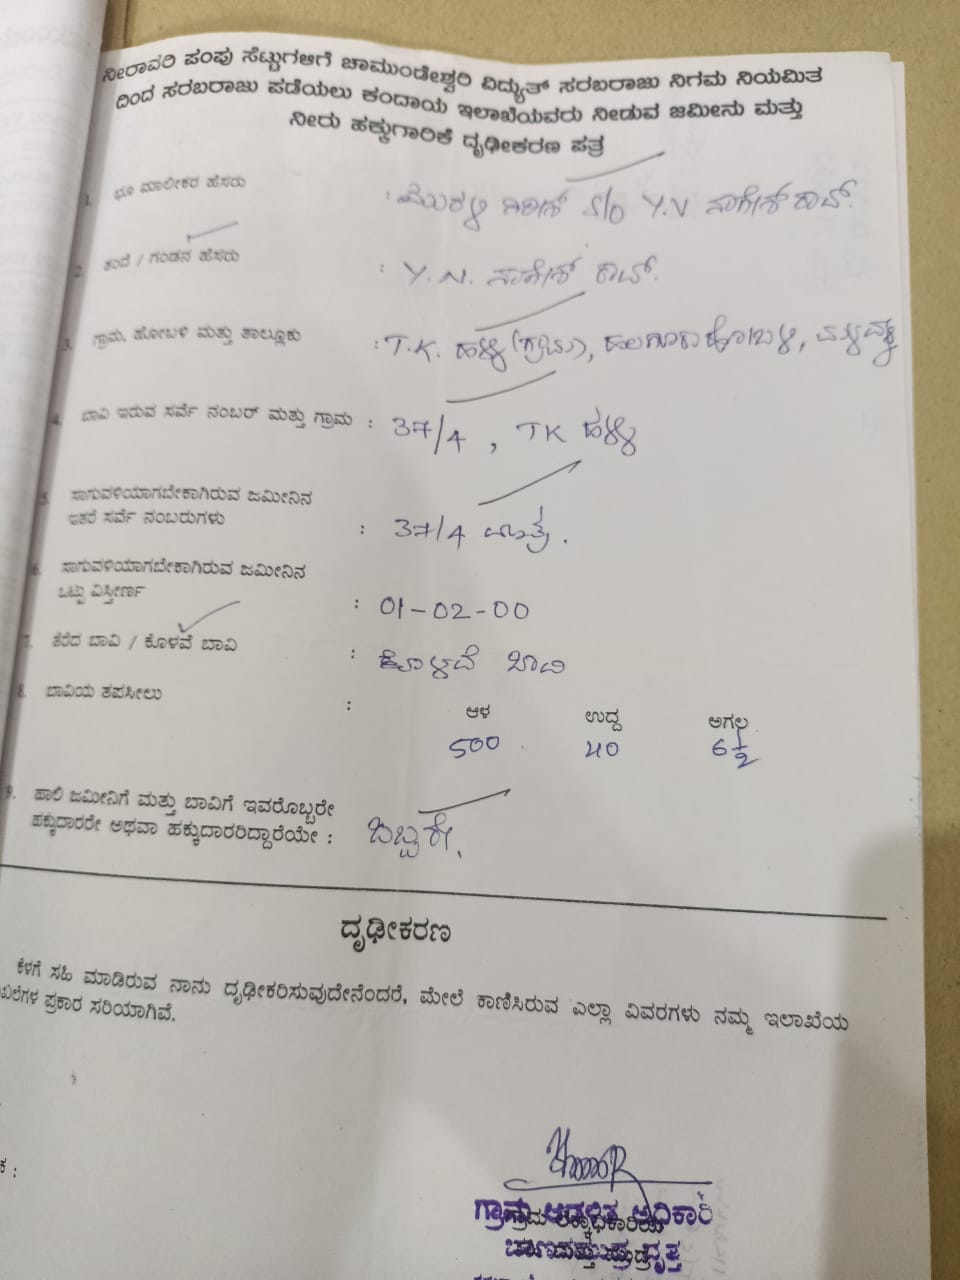 ನೀರಾವರಿ ಪಂಪು ಸೆಟ್ಟುಗಳಿಗೆ ಚಾಮುಂಡೇಶ್ವರಿ ವಿದ್ಯುತ್ ಸರಬರಾಜು ನಿಗಮ ನಿಯಮಿತ
ದಿಂದ ಸರಬರಾಜು ಪಡೆಯಲು ಕಂದಾಯ ಇಲಾಖೆಯವರು ನೀಡುವ ಜಮೀನು ಮತ್ತು
ನೀರು ಹಕ್ಕುಗಾರಿಕೆ ದೃಢೀಕರಣ ಪತ್ರ
1. ಭೂ ಮಾಲೀಕರ ಹೆಸರು : S/o Y.V ನಾಗೇಶ್ ರಾವ್.
2. ತಂದೆ / ಗಂಡನ ಹೆಸರು : Y.N. ನಾಗೇಶ್ ರಾವ್.
3. ಗ್ರಾಮ, ಹೋಬಳಿ ಮತ್ತು ತಾಲ್ಲೂಕು : T.K. ಹಳ್ಳಿ (ಗ್ರಾಮ), ಹಲಗೂರು ಹೋಬಳಿ, ಮಳವಳ್ಳಿ
4. ಬಾವಿ ಇರುವ ಸರ್ವೆ ನಂಬರ್ ಮತ್ತು ಗ್ರಾಮ : 37/4, TK ಹಳ್ಳಿ
5. ಸಾಗುವಳಿಯಾಗಬೇಕಾಗಿರುವ ಜಮೀನಿನ
ಇತರೆ ಸರ್ವೆ ನಂಬರುಗಳು : 37/4 ಮಾತ್ರ.
6. ಸಾಗುವಳಿಯಾಗಬೇಕಾಗಿರುವ ಜಮೀನಿನ
ಒಟ್ಟು ವಿಸ್ತೀರ್ಣ : 01-02-00
7. ತೆರೆದ ಬಾವಿ / ಕೊಳವೆ ಬಾವಿ : ಕೊಳವೆ ಬಾವಿ
8. ಬಾವಿಯ ತಪಸೀಲು :
ಆಳ ಉದ್ದ ಅಗಲ
500 40 6½
9. ಹಾಲಿ ಜಮೀನಿಗೆ ಮತ್ತು ಬಾವಿಗೆ ಇವರೊಬ್ಬರೇ
ಹಕ್ಕುದಾರರೇ ಅಥವಾ ಹಕ್ಕುದಾರರಿದ್ದಾರೆಯೇ : ಒಬ್ಬರೇ.
ದೃಢೀಕರಣ
ಕೆಳಗೆ ಸಹಿ ಮಾಡಿರುವ ನಾನು ದೃಢೀಕರಿಸುವುದೇನೆಂದರೆ, ಮೇಲೆ ಕಾಣಿಸಿರುವ ಎಲ್ಲಾ ವಿವರಗಳು ನಮ್ಮ ಇಲಾಖೆಯ
ಖಲೆಗಳ ಪ್ರಕಾರ ಸರಿಯಾಗಿವೆ.
ಕ :
ಗ್ರಾಮ ಆಡಳಿತ ಅಧಿಕಾರಿ
ವೃತ್ತ